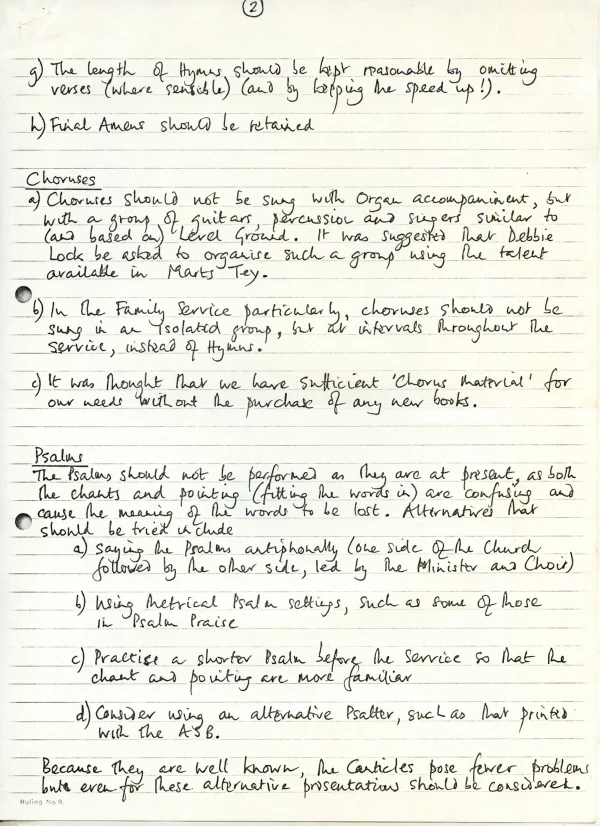 2
g) The length of Hymns should be kept reasonable by omitting
verses (where sensible) (and by keeping the speed up!).
h) Final Amens should be retained
Choruses
a) Choruses should not be sung with Organ accompaniment, but
with a group of guitars, percussion and singers similar to
(and based on) Level Ground. It was suggested that Debbie
Lock be asked to organise such a group using the talent
available in Marks Tey.
b) In the Family Service particularly, choruses should not be
sung in an isolated group, but at intervals throughout the
service, instead of Hymns.
c) It was thought that we have sufficient 'Chorus Material' for
our needs without the purchase of any new books.
Psalms
The Psalms should not be performed as they are at present, as both
the chants and pointing (fitting the words in) are confusing and
cause the meaning of the words to be lost. Alternatives that
should be tried include
a) Saying the Psalms antiphonally (one side of the Church
followed by the other side, led by the Minister and Choir)
b) Using Metrical Psalm settings, such as some of those
in Psalm Praise
c) Practise a shorter Psalm before the service so that the
chant and pointing are more familiar
d) Consider using an alternative Psalter, such as that printed
with the ASB.
Because they are well known, the Canticles pose fewer problems
but even for these alternative presentations should be considered.
Ruling No 9.